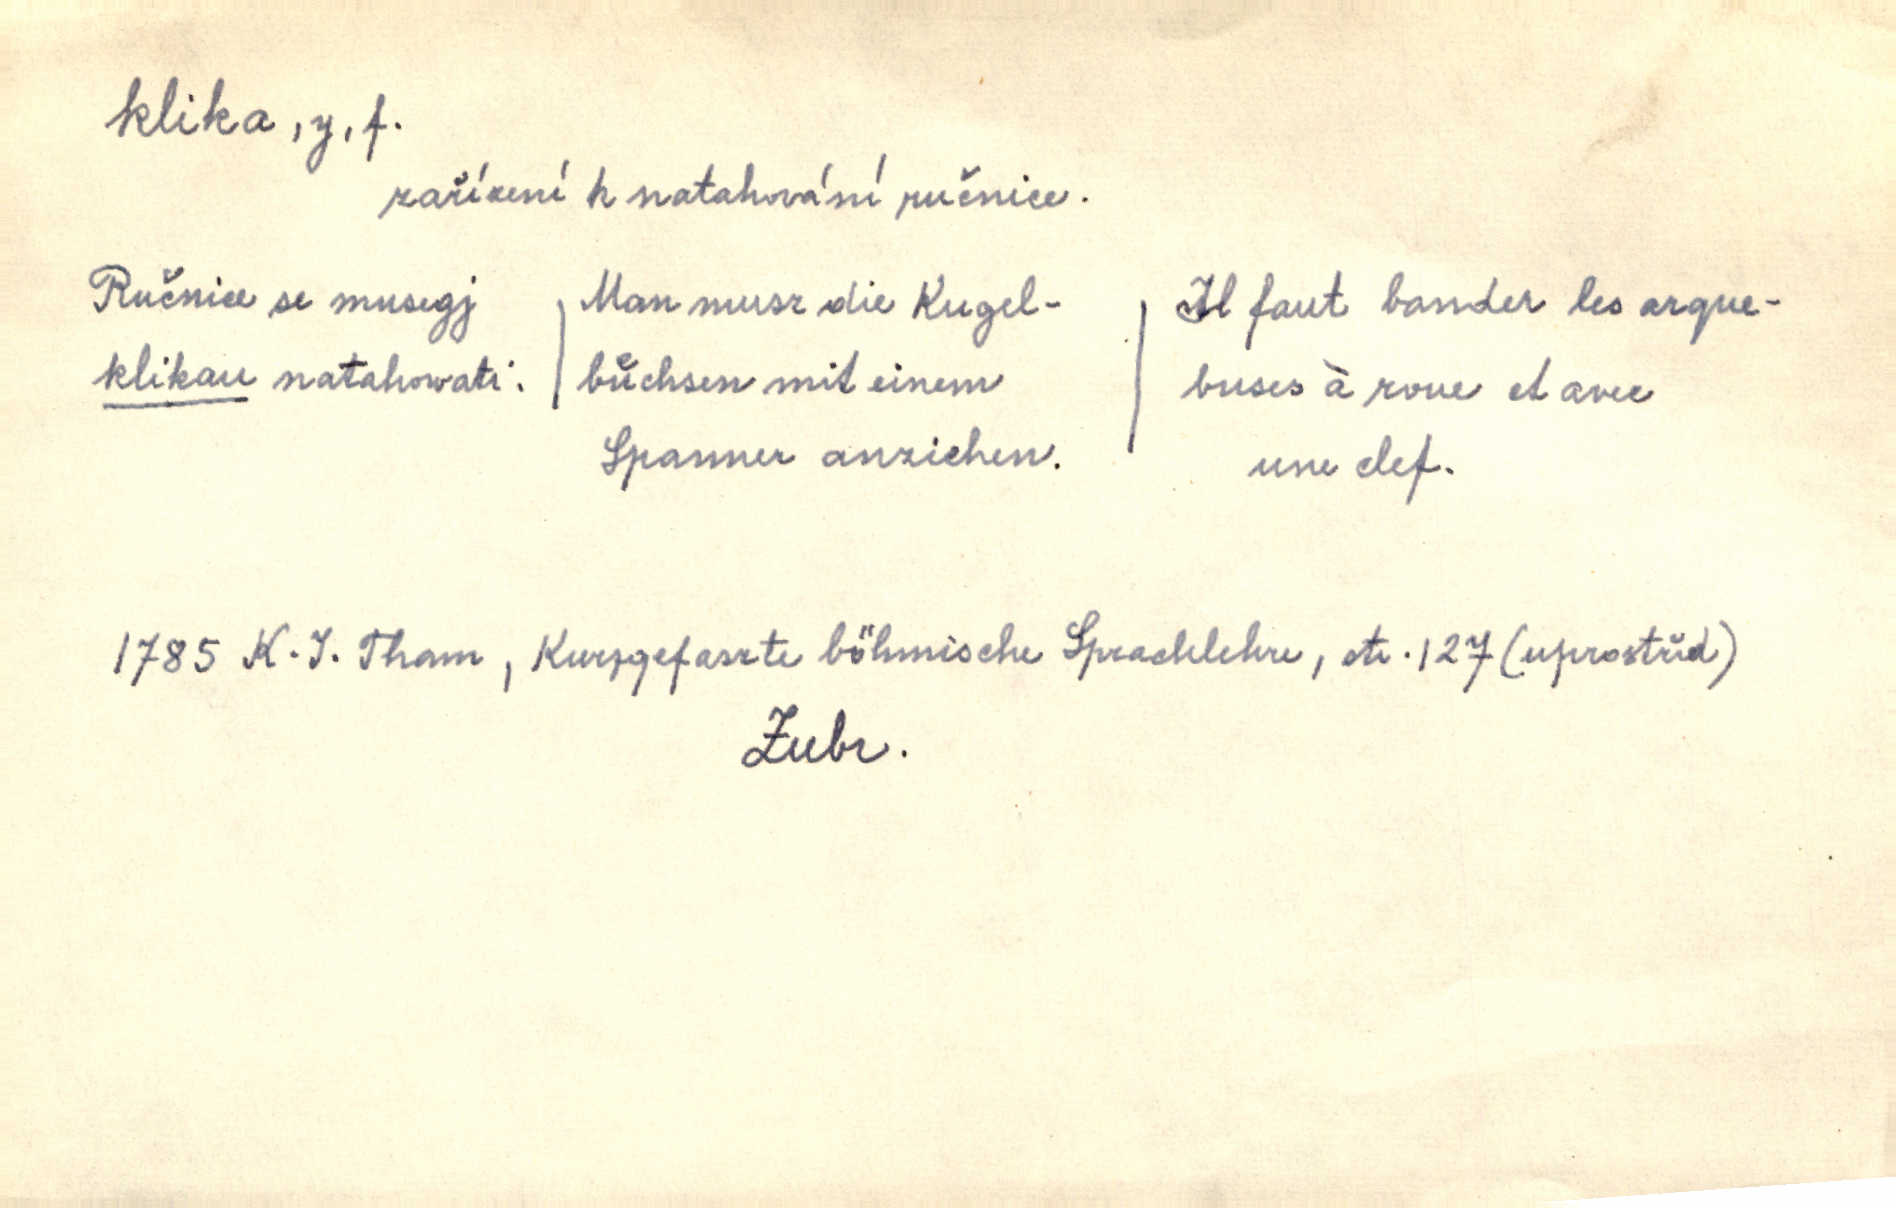 klika, y, f.
zařízení k natahování ručnice.
Ručnice se musegj | Man musz die Kugel- | Il faut bander les arque-
klikau natahowati. | büchsen mit einem | buses à roue et avec
Spanner anziehen. | une clef.
1785 K. I. Tham, Kurzgefaszte böhmische Sprachlehre, str. 127 (uprostřed)
Zubr.